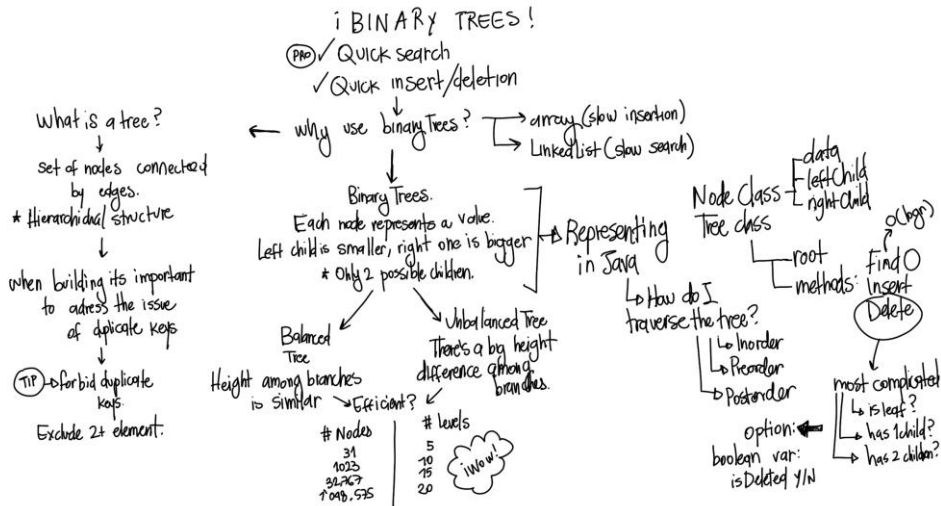 ¡BINARY TREES!
PRO ✓ Quick search
✓ Quick insert/deletion
why use binary Trees?
array (slow insertion)
Linked List (slow search)
What is a tree?
set of nodes connected
by edges.
* Hierarchidral structure
when building its important
to adress the issue
of duplicate keys
TIP forbid duplicate
keys.
Exclude 2+ element.
Binary Trees.
Each node represents a value.
Left child is smaller, right one is bigger
* Only 2 possible children.
Balanced
Tree
Height among branches
is similar
Unbalanced Tree
There's a big height
difference among
branches.
Efficient?
# Nodes
31
1023
32,767
1'048,575
# Levels
5
10
15
20
¡Wow!
Representing
in Java
How do I
traverse the tree?
Inorder
Preorder
Postorder
Node Class
data
leftChild
rightChild
Tree class
root
methods:
Find()
Insert
Delete
O(logn)
most complicated
is leaf?
has 1 child?
has 2 children?
option:
boolean var:
isDeleted Y/N